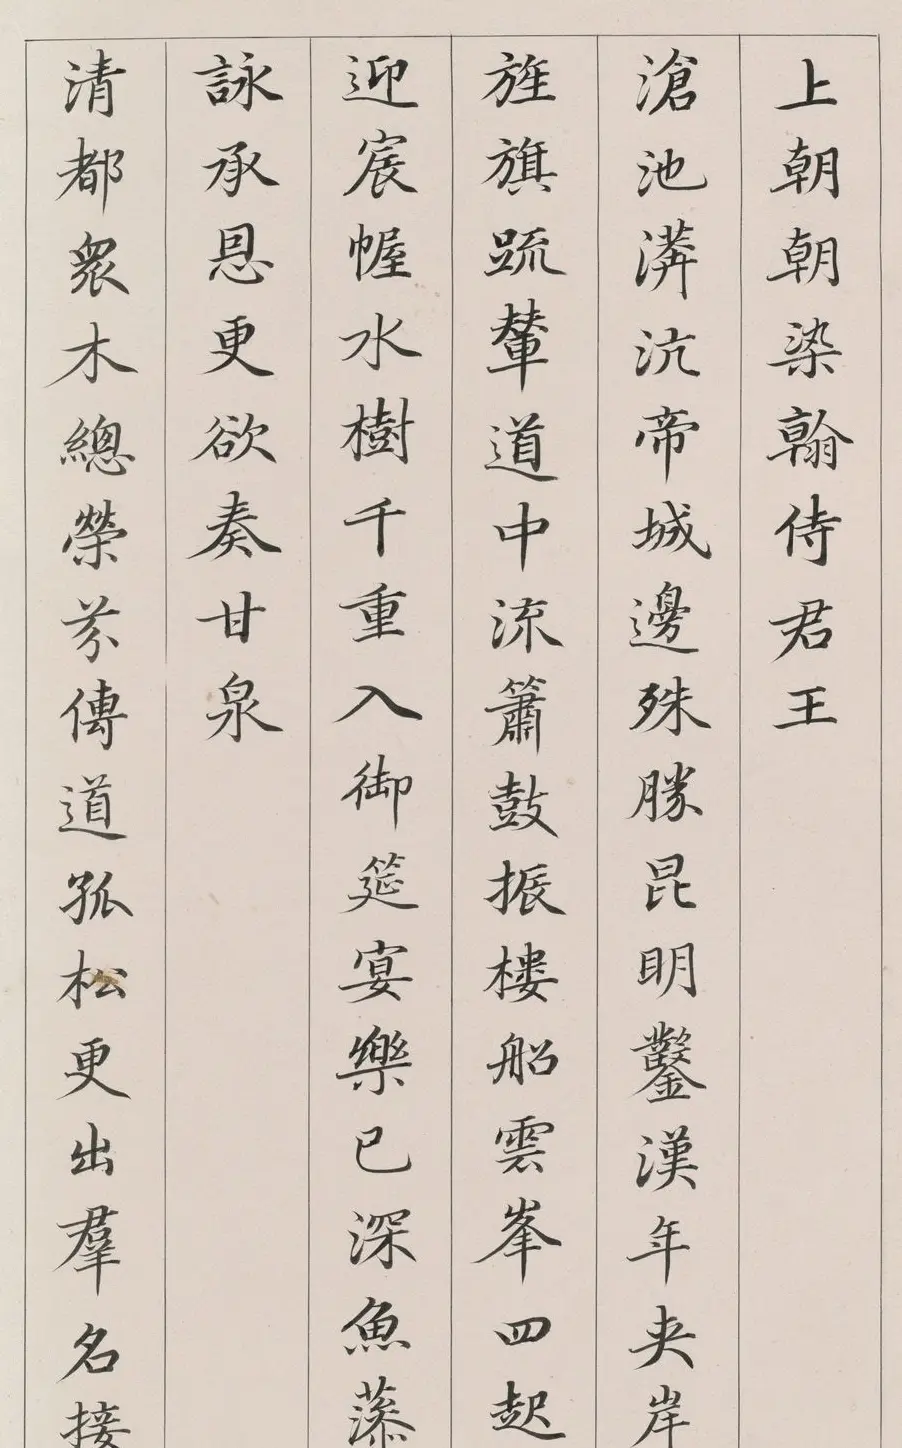 上朝朝染翰侍君王
滄池漭沆帝城邊殊勝昆明鑿漢年夾岸
旌旗疏輦道中流簫鼓振樓船雲峯四起
迎宸幄水樹千重入御筵宴樂已深魚藻
詠承恩更欲奏甘泉
清都衆木總榮芬傳道孤松更出羣名接